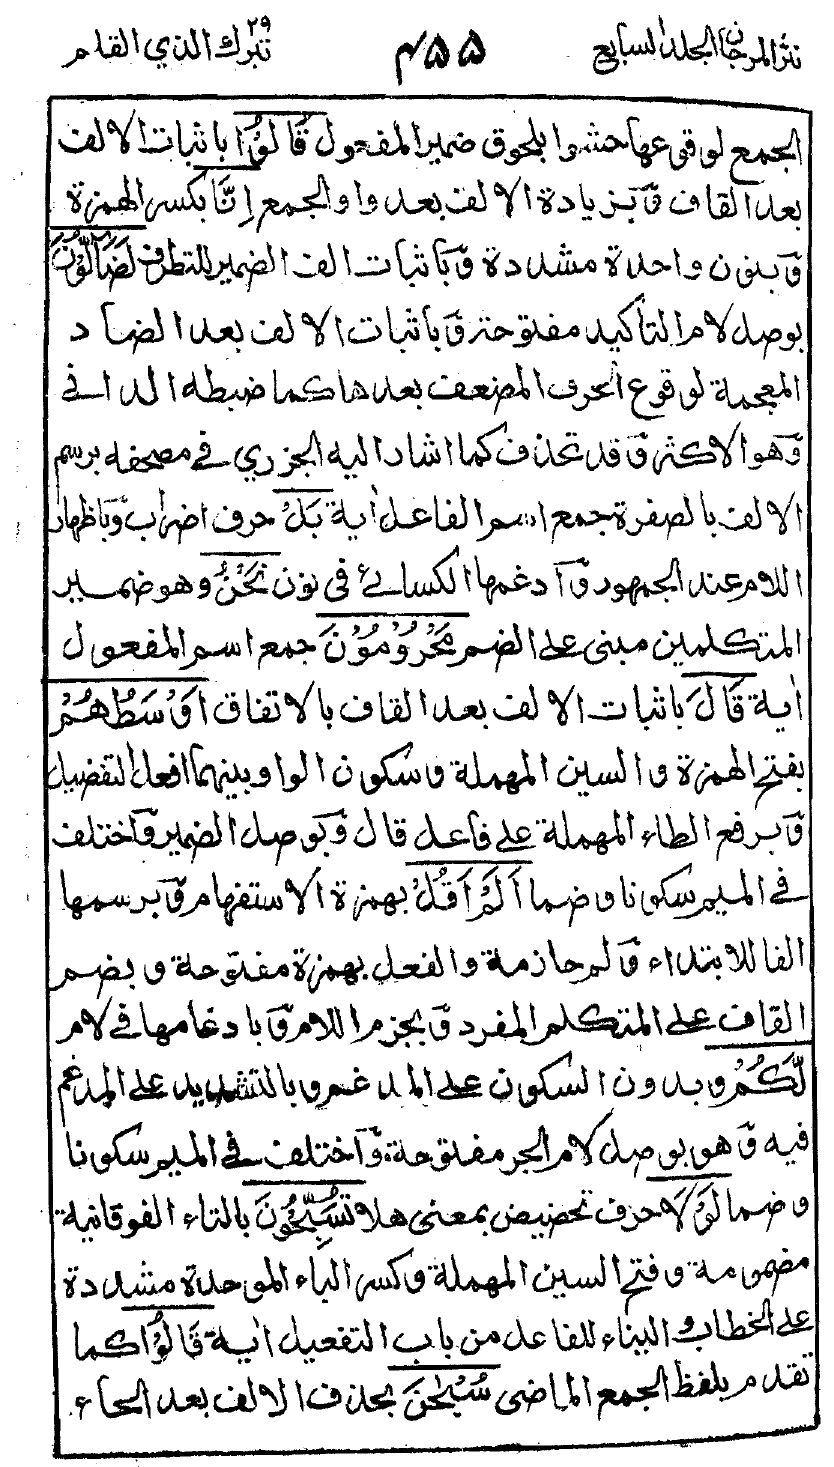 نثر المرجان المجلد السابع ۴۵۵ تبرك الذي ۲۹ القلم
الجمع لوقوعها حشوا بلحوق ضمير المفعول قَالُوْٓا باثبات الالف
بعد القاف وبزيادة الالف بعد واو الجمع اِنَّا بكسر الهمزة
وبنون واحدة مشددة وباثبات الف الضمير للتطرف لَضَآلُّوْنَ
بوصل لام التأكيد مفتوحة وباثبات الالف بعد الضاد
المعجمة لوقوع الحرف المضعف بعدها كما ضبطه الداني
وهو الاكثر وقد تحذف كما اشار اليه الجزري في مصحفه برسم
الالف بالصفرة جمع اسم الفاعل اٰية بَلْ حرف اضراب وباظهار
اللام عند الجمهور وادغمها الكسائي في نون نَحْنُ وهو ضمير
المتكلمين مبني على الضم مَحْرُوْمُوْنَ جمع اسم المفعول
اٰية قَالَ باثبات الالف بعد القاف بالاتفاق اَوْسَطُهُمْ
بفتح الهمزة والسين المهملة وسكون الواو بينهما افعل التفضيل
وبرفع الطاء المهملة على فاعل قال وبوصل الضمير واختلف
في الميم سكونا وضما اَلَمْ اَقُلْ بهمزة الاستفهام وبرسمها
الفا للابتداء ولم جازمة والفعل بهمزة مفتوحة وبضم
القاف على المتكلم المفرد وبجزم اللام وبادغامها في لام
لَّكُمْ وبدون السكون على المدغم وبالتشديد على المدغم
فيه وهو بوصل لام الجر مفتوحة واختلف في الميم سكونا
وضما لَوْلَا حرف تحضيض بمعنى هلا تُسَبِّحُوْنَ بالتاء الفوقانية
مضمومة وفتح السين المهملة وكسر الباء الموحدة مشددة
على الخطاب والبناء للفاعل من باب التفعيل اٰية قَالُوْا كما
تقدم بلفظ الجمع الماضي سُبْحٰنَ بحذف الالف بعد الحاء